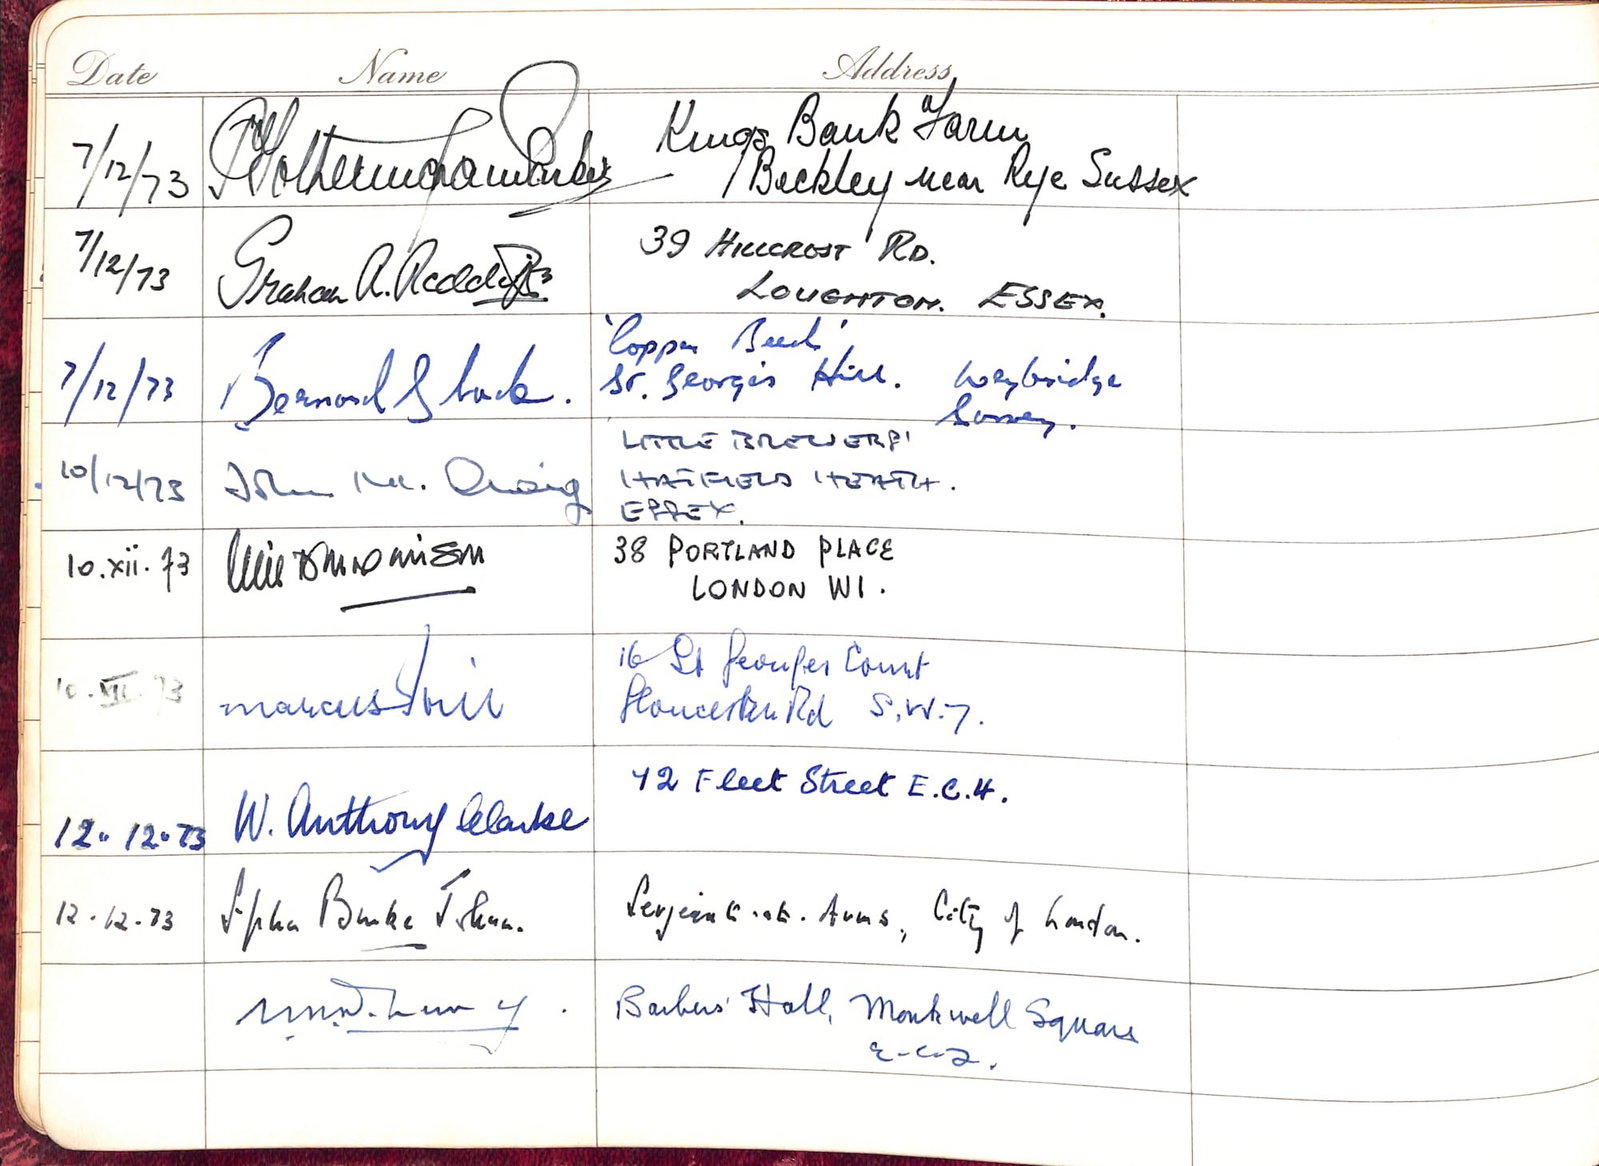 Date Name Address
7/12/73 Kings Bank Farm
Beckley near Rye Sussex
7/12/73 Graham A. 39 HILLCREST RD.
LOUGHTON. ESSEX.
7/12/73 Bernard Black. 'Copper Beech'
St. Georges Hill. Weybridge
Surrey.
10/12/73 John M. Craig LITTLE BREWERS'
HATFIELD HEATH.
ESSEX.
10.xii.73 38 PORTLAND PLACE
LONDON W1.
10.XII.73 marcus 16 St Georges Court
Gloucester Rd S.W.7.
12.12.73 W. Anthony Clarke 72 Fleet Street E.C.4.
12.12.73 Serjeant-at-Arms, City of London.
Barbers' Hall, Monkwell Square
E.C.2.